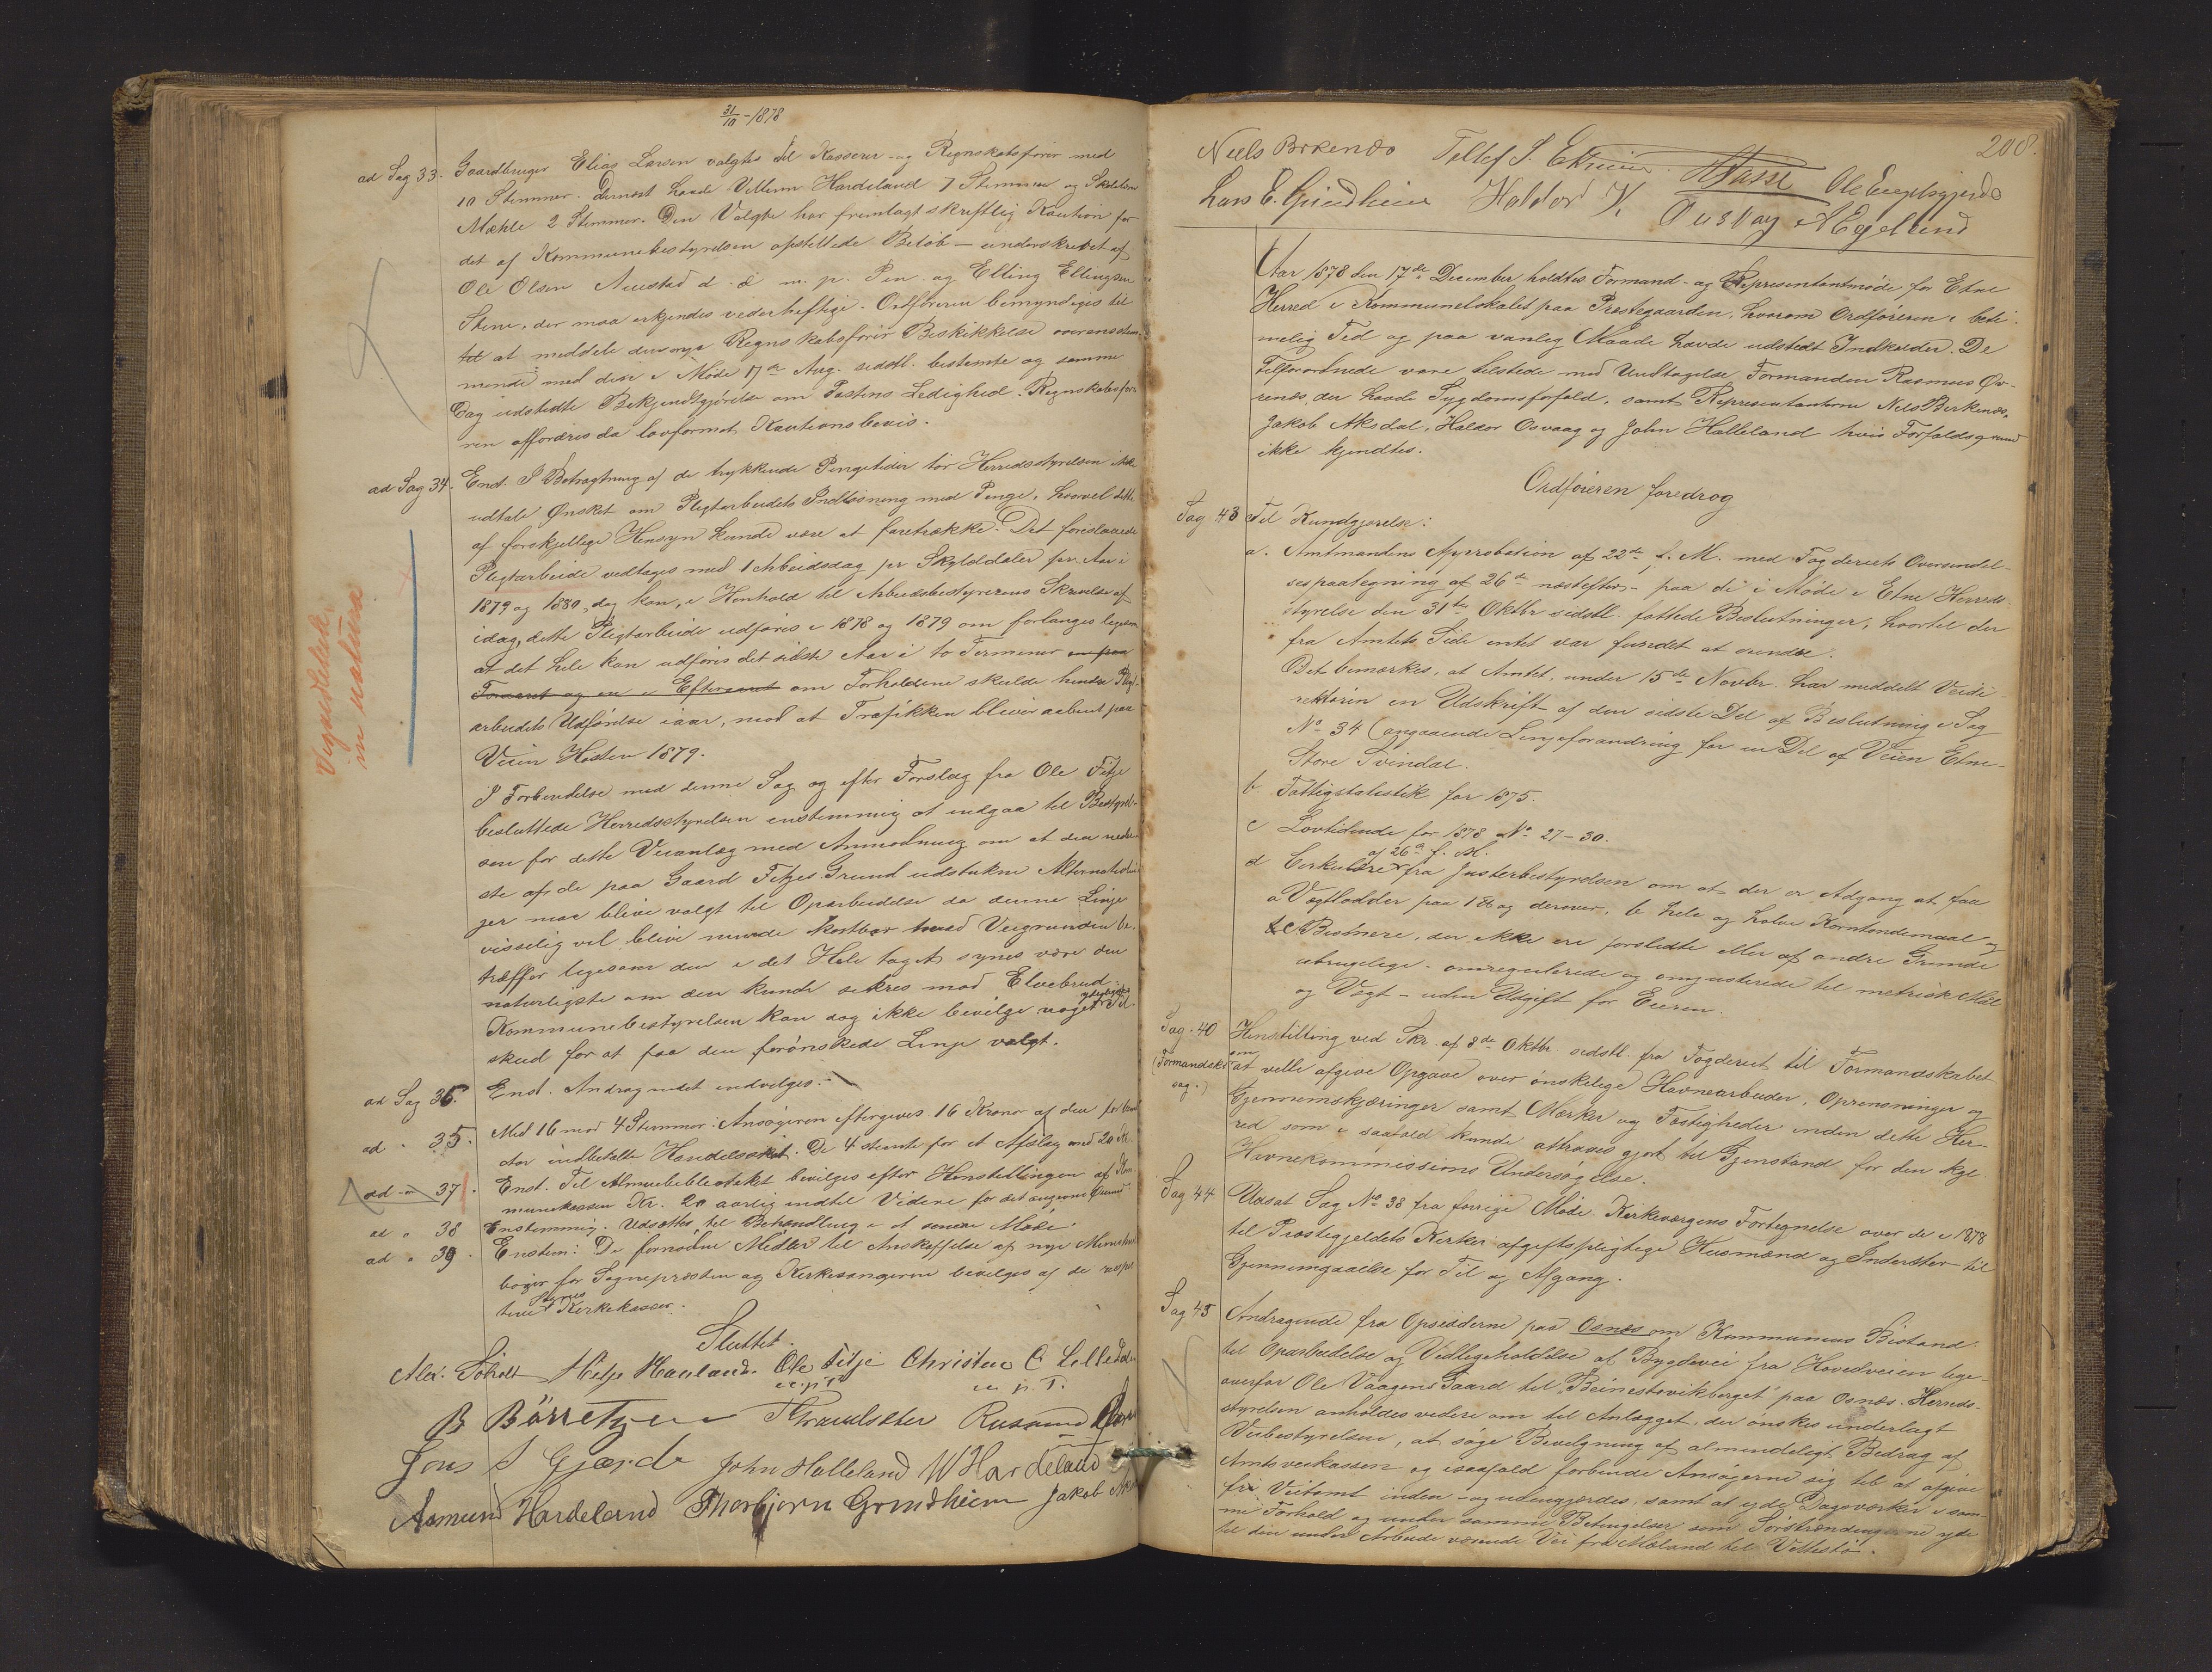 31/10 - 1878
ad Sag 33. Gaardbruger Elias Larsen valgtes til Kasserer- og Regnskabsfører med
10 Stemmer. Dernæst havde Villum Hardeland 7 Stemmer og
Mæhle 2 Stemmer. Den Valgte har fremlagt skriftlig Kaution for
det af Kommunebestyrelsen opstillede Beløb – underskrevet af
Ole Olsen Auestad d. æ m. p. Pen og Elling Ellingsen
Stene, der maa erkjendes vederheftige. Ordføreren bemyndiges til
til at meddele Regnskabsfører Beskikkelse overensstem-
mende med den i Møde 17de Aug. sidstl. bestemte og samme
Dag udstedte Bekjendtgjørelse om Postens Ledighed. Regnskabsfø-
ren affordres da lovformet Kautionsbevis.
ad Sag 34. Enst. I Betragtning af de trykkende Pengetider tør Herredsstyrelsen ikke
udtale Ønsket om Pligtarbeidets Indløsning med Penge, hvorvel dette
af forskjellige Hensyn kunde være at foretrække. Det foreslaaede
Pligtarbeide vedtages med 1 Arbeidsdag pr Skylddaler pr. Aar i
1879 og 1880, dog kan, i Henhold til Arbeidsbestyrerens Skrivelse af
idag, dette Pligtarbeide udføres i 1878 og 1879 om forlanges ligesom
at det hele kan udføres det sidste Aar i to Terminer en paa
Foraaret og en i Efteraaret om Forholdene skulde hindre Pligt-
arbeidets Udførelse iaar, mod at Trafikken bliver aabent paa
Veien Høsten 1879.
I Forbindelse med denne Sag og efter Forslag fra Ole Fitje
besluttede Herredsstyrelsen enstemmig at indgaa til Bestyrel-
sen for dette Veianlæg med Anmodning om at den neder-
ste af de paa Gaard Fitjes Grund udstukne Alternativlin-
jer maa blive valgt til Oparbeidelse da denne Linje
visselig vil blive mindre kostbar hvad Veigrunden be-
træffer ligesom den i det Hele taget synes være den
naturligste om den kunde sikres mod Elvebrud.
Kommunebestyrelsen kan dog ikke bevilge noget yderligere Til-
skud for at faa den forønskede Linje valgt.
Vegvedlikeh.
in natura
ad Sag 36. Enst. Andragendet indvilges.
ad " 35. Med 16 mod 4 Stemmer: Ansøgeren eftergives 16 Kroner af den
indbetalte Handelsskat. De 4 stemte for et Afslag med 20 Kr.
ad " 37. Enst. Til Almuebibliotheket bevilges efter Henstillingen af Kom-
munekassen Kr. 20 aarlig indtil Videre for det angivne Øiemed
ad " 38 Enstemmig. Udsættes til Behandling i et senere Møde.
ad " 39. Enstem: De fornødne Midler til Anskaffelse af nye Messe
bøger for Sognepresten og Kirkesangerne bevilges af de respe
tive Sognes Kirkekasser.
Sluttet.
Alex. Søholt Helje Hauland. Ole Fitje Christen C Lilledal
m. p. P. m p. P.
B Børretzen Rasmus
Jens S Gjærde John Halleland W Hardeland
Asmund Hardeland Thorbjørn Grindheim Jakob
208.
Niels Birkenæs Tollef S. Etnier Ole Engelsgjerde
Lars E. Grindheim Haldor K. Ausvag A Egeland
Aar 1878 den 17de December holdtes Formand- og Representantmøde for Etne
Herred i Kommunelokalet paa Prestegaarden, hvorom Ordføreren i beti-
melig Tid og paa vanlig Maade havde udstedt Indkalder. De
Tilforordnede vare tilstede med Undtagelse Formanden Rasmus Øv-
renæs, der havde Sygdomsforfald, samt Representanterne Nels Birkenæs,
Jakob Aksdal, Haldor Osvaag og John Halleland hvis Forfaldsgrund
ikke kjendtes.
Ordføreren foredrog
Sag 43 Til Kundgjørelse:
a. Amtmandens Approbation af 22de f. M. med Fogderiets Oversendel-
sespaategning af 26de næstefter – paa de i Møde i Etne Herreds-
styrelse den 31te Oktbr sidstl. fattede Beslutninger, hvortil der
fra Amtets Side intet var fundet at erindre.
Det bemærkes, at Amtet, under 15de Novbr. har meddelt Veidi-
rektøren en Udskrift af den sidste Del af Beslutning i Sag
No 34 (angaaende Linjeforandring for en Del af Veien Etne-
Store Svindal.
b Fattigstatistik for 1875.
c Lovtidende for 1878 No 27–30.
d Cirkulære af 26de f. M. fra Justerbestyrelsen om at der er Adgang at faa
a Vægtlodder paa 1 ℔ og derover, b hele og halve Korntøndemaal og
& c Bismere, der ikke ere forslidte eller af andre Grunde
ubrugelige – omregulerede og omjusterede til metrisk Mål
og Vægt – uden Udgift for Eieren.
Sag. 40 (Formandsk. sag.) Henstilling ved Skr. af 8de Oktbr. sidstl. fra Fogderiet til Formandskabet
om at ville afgive Opgave over ønskelige Havnearbeider, Oprensninger og
Gjennemskjæringer samt Mærker og Fæstigheder inden dette Her-
red som i saafald kunde attraaes gjort til Gjenstand for den kgl.
Havnekommissions Undersøgelse.
Sag 44 Udsat Sag No 38 fra forrige Møde. Kirkeværgens Fortegnelse over de i 1878
til Prestegjeldets Kirker afgiftspligtige Husmænd og Inderster til
Gjennemgaaelse for Til og Afgang.
Sag 45 Andragende fra Opsidderne paa Osnes om Kommunens Bistand
til Oparbeidelse og Vedligeholdelse af Bygdevei fra Hovedveien lige-
overfor Ole Vaagens Gaard til "Beinestøvikberget" paa Osnæs. Herreds-
styrelsen anholdes videre om til Anlægget, der ønskes underlagt
Veibestyrelsen, at søge Bevilgning af almindeligt Bedrag af
Amtsveikassen og isaafald forbinde Ansøgerne sig til at afgive
fri Veitomt inden- og udengjerdes, samt at yde Dagsværker i sam-
me Forhold og under samme Betingelser som Sørstrendingerne yde
til den under Arbeide værende Vei fra Mæland til Vellestø.